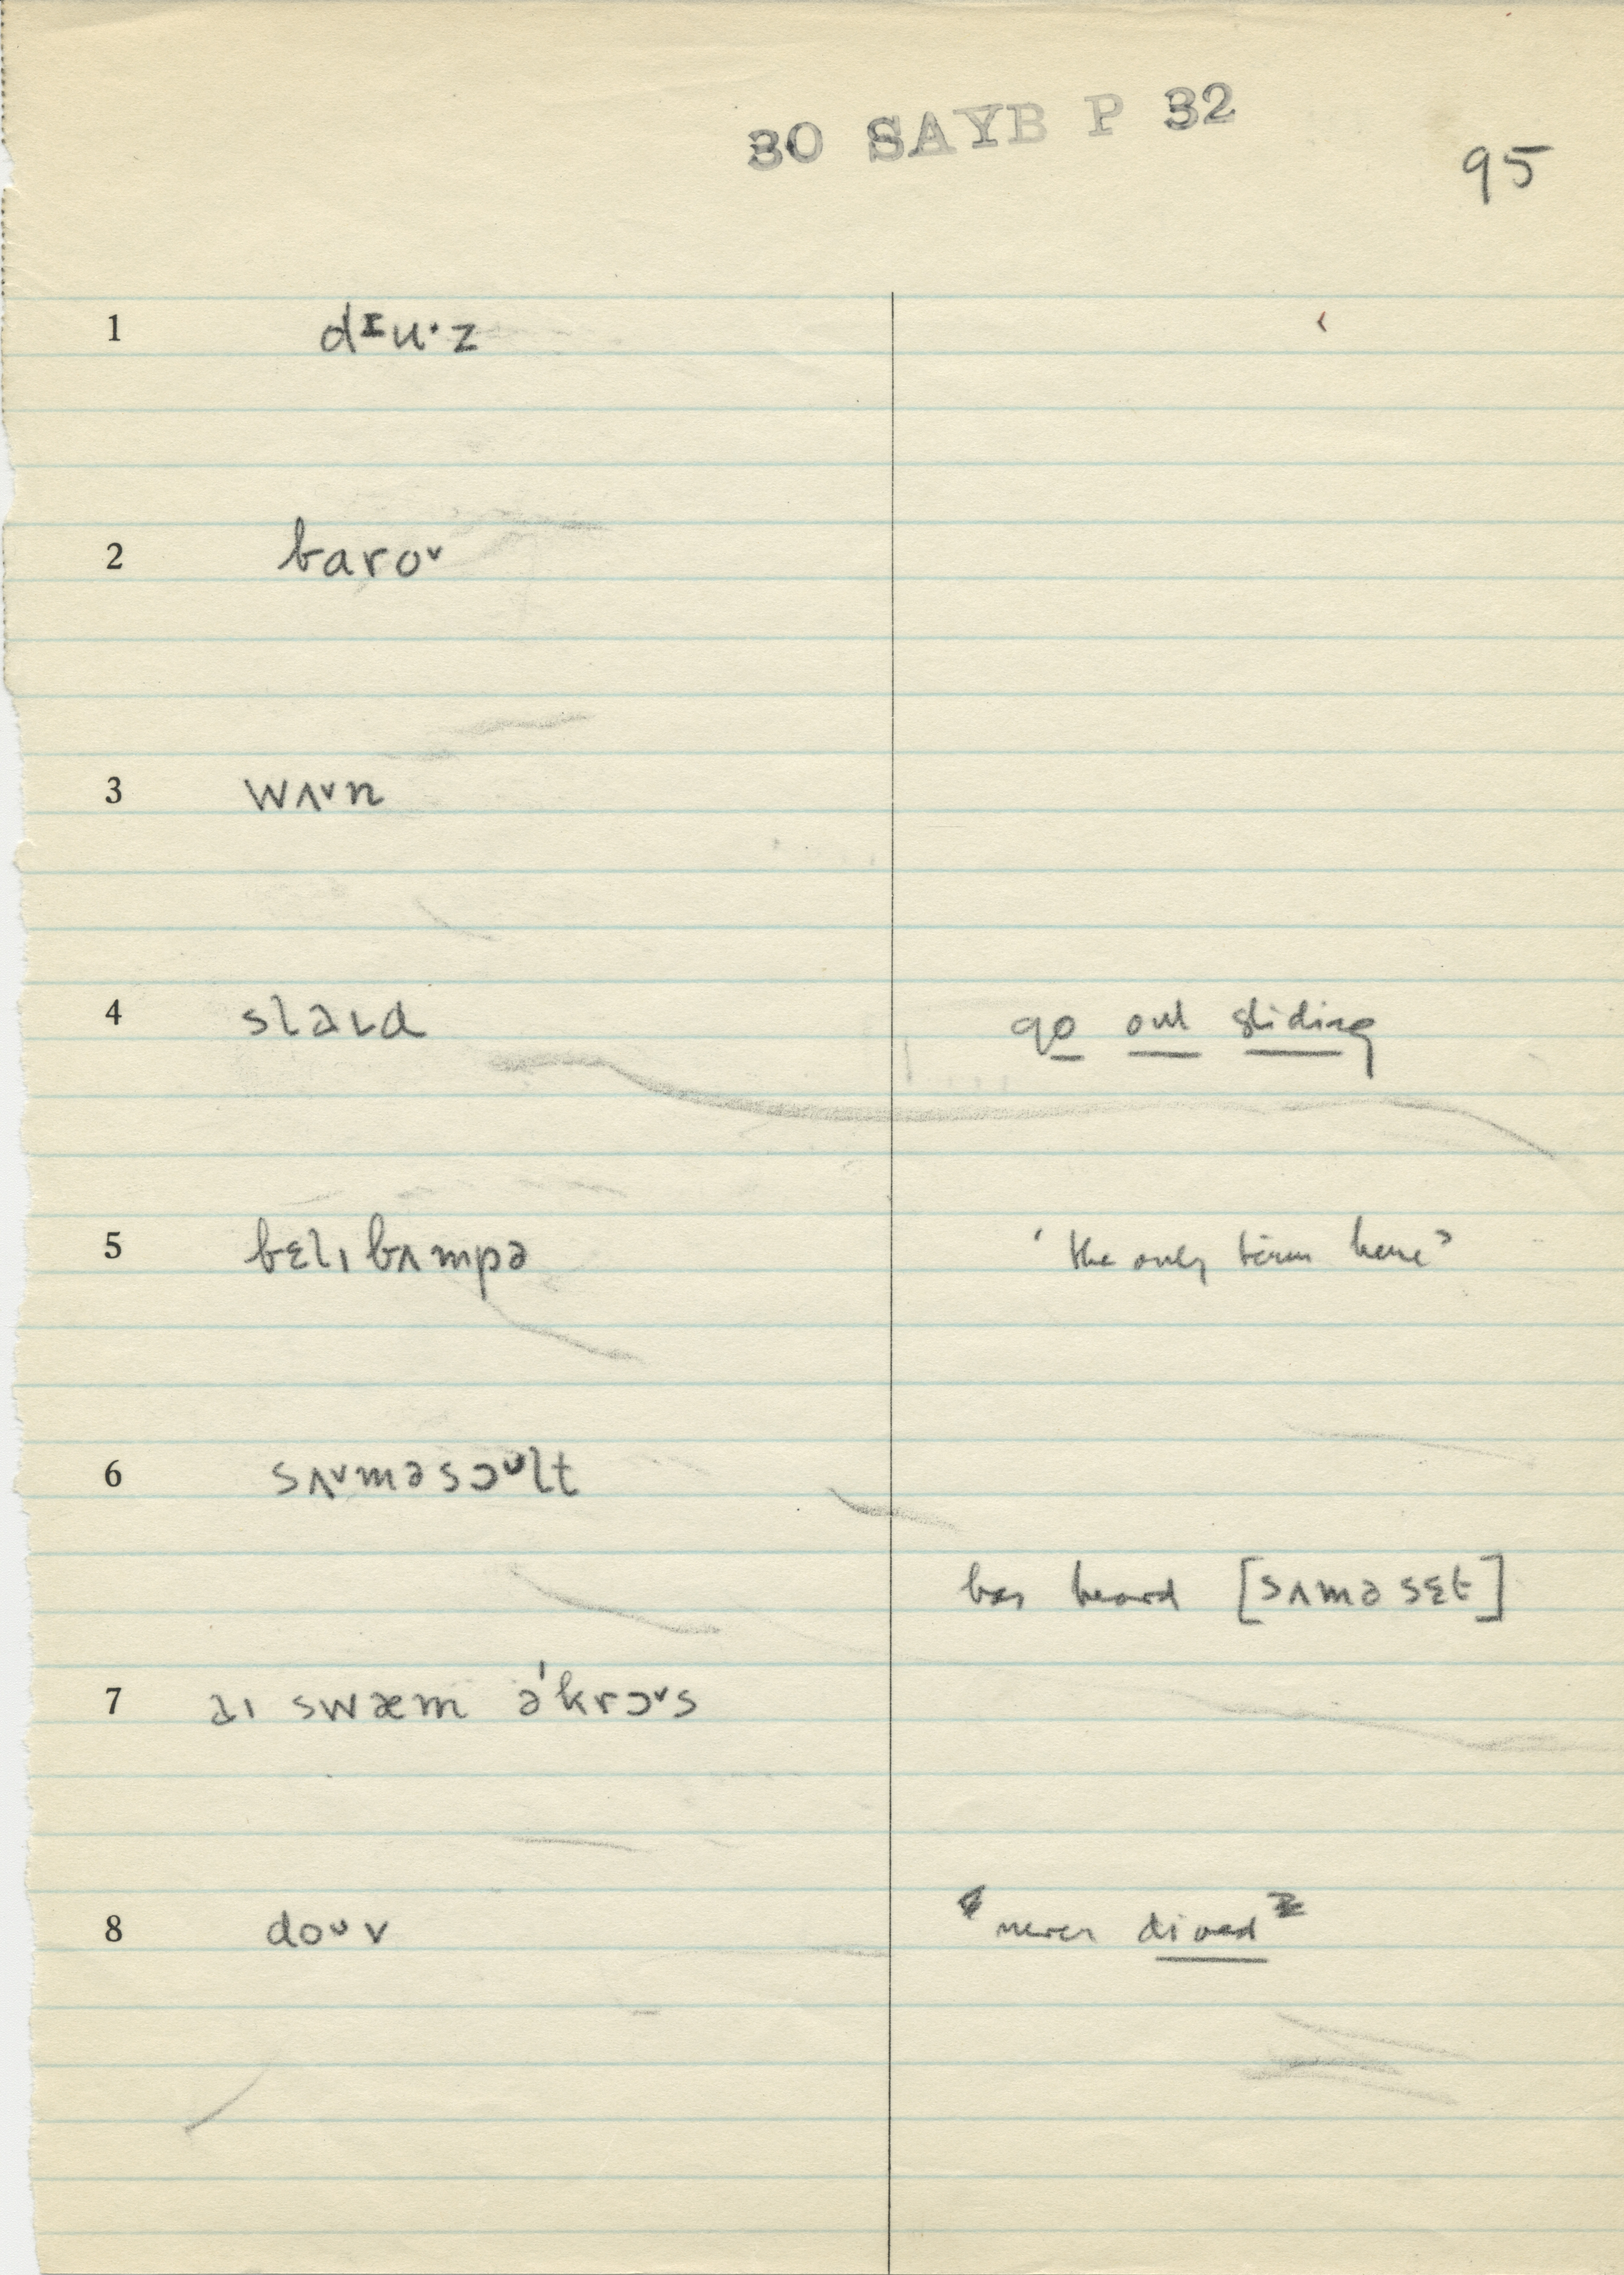 30 SAYB P 32
95
1 dɪu·z
2 barov
3 wʌvn
4 slaɪd go out sliding
5 bɛlɪ bʌmpə 'the only term here'
6 sʌvməsɔᴜlt
has heard [sʌməsɛt]
7 aɪ swæm ə'krɔvs
8 doᴜv never dived